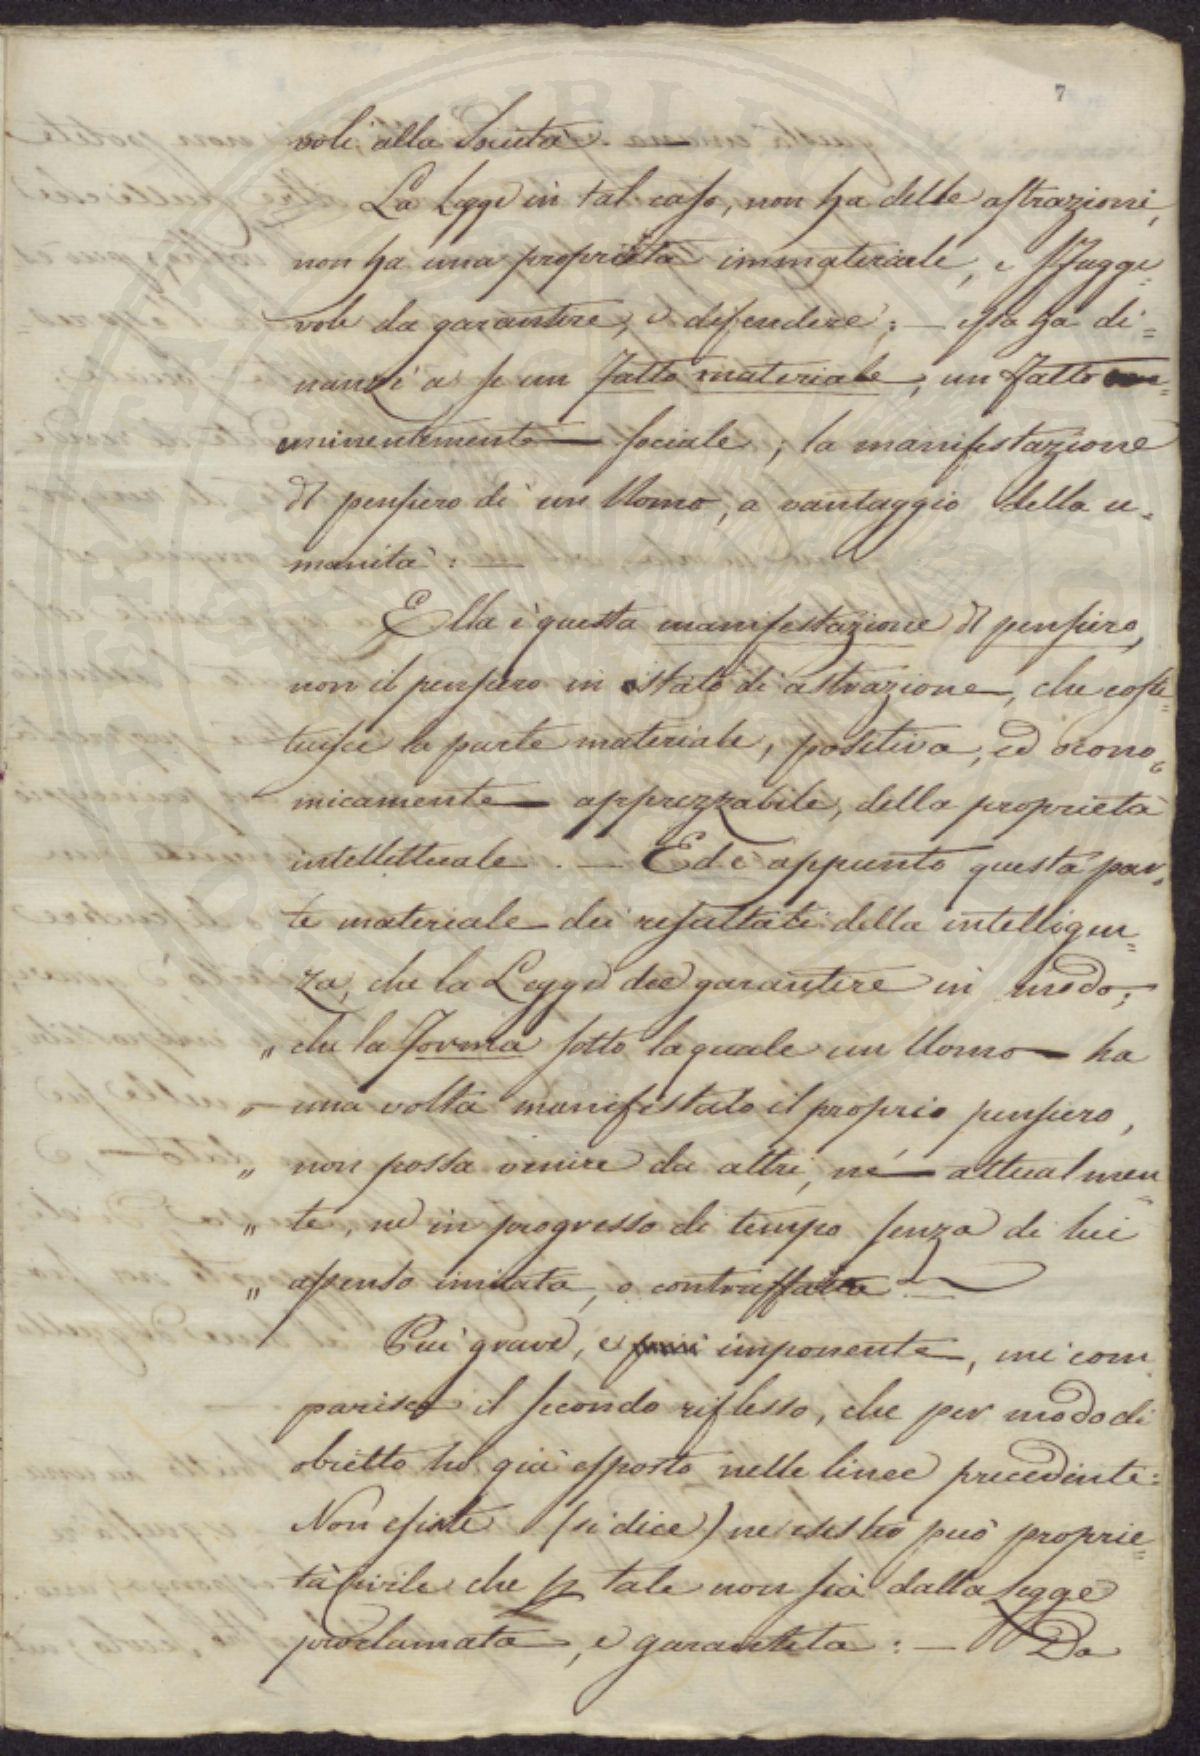 7
voli alla Società. —
La Legge in tal caso, non ha delle astrazioni,
non ha una proprietà immateriale, e sfugge=
vole da garantire, e difendere; — essa ha di=
nanzi a se un fatto materiale, un fatto
eminentemente sociale; la manifestazione
del pensiero di un Uomo, a vantaggio della u=
manità: —
Ella è questa manifestazione del pensiero,
non il pensiero in istato di astrazione, che costi=
tuisce la parte materiale, positiva, ed econo=
micamente apprezzabile, della proprietà
intellettuale. — Ed è appunto questa par=
te materiale dei resultati della intelligen=
za, che la Legge dee garantire in modo;
„ che la forma sotto la quale un Uomo ha
„ una volta manifestato il proprio pensiero,
„ non possa venire da altri, nè attualmen=
„ te, nè in progresso di tempo senza di lui
„ assenso imitata, o contraffatta —
Più grave, e imponente, mi com
parisce il secondo riflesso, che per modo di
obietto ho già esposto nelle linee precedenti:
Non esiste (si dice) ne esister può proprie=
tà civile che p tale non sia dalla Legge
proclamata, e garantita: — Da